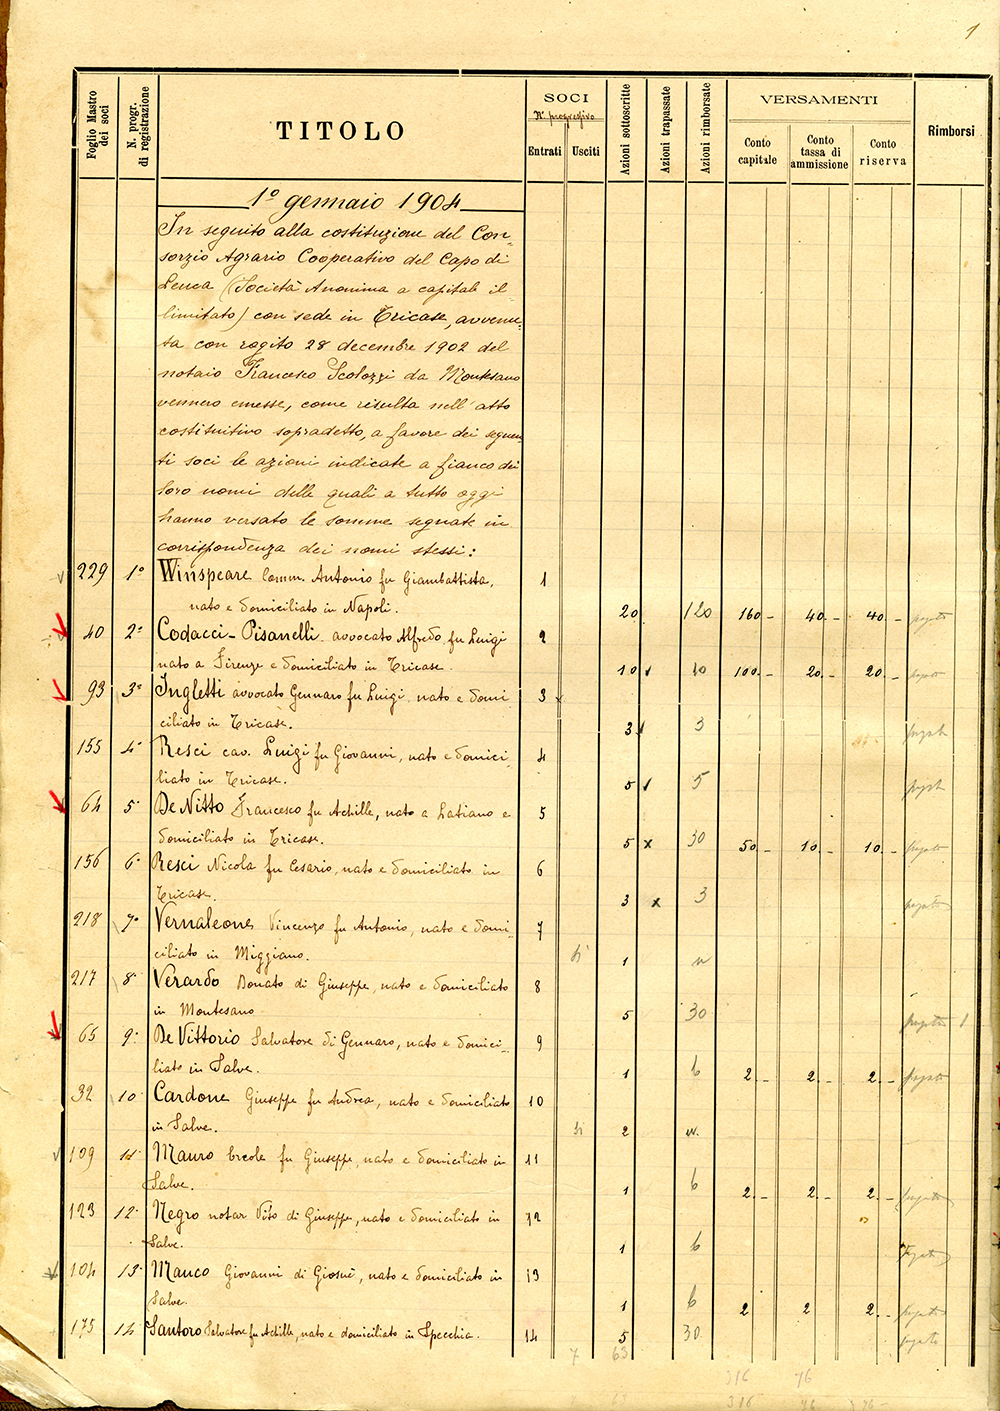 1
Foglio Mastro dei soci
N. progr. di registrazione
TITOLO
SOCI
N° progressivo
Entrati Usciti
Azioni sottoscritte
Azioni trapassate
Azioni rimborsate
VERSAMENTI
Conto capitale
Conto tassa di ammissione
Conto riserva
Rimborsi
1º gennaio 1904
In seguito alla costituzione del Con-
sorzio Agrario Cooperativo del Capo di
Leuca (Società Anonima a capitale il-
limitato) con sede in Tricase, avvenu-
ta con rogito 28 decembre 1902 del
notaio Francesco Scolozzi da Montesano
vennero emesse, come risulta nell'atto
costituitivo sopradetto, a favore dei seguen-
ti soci le azioni indicate a fianco dei
loro nomi delle quali a tutto oggi
hanno versato le somme segnate in
corrispondenza dei nomi stessi:
229 1º Winspeare Comm. Antonio fu Giambattista, 1
nato e domiciliato in Napoli. 20 120 160.- 40.- 40.- pagato
40 2º Codacci-Pisanelli avvocato Alfredo fu Luigi 2
nato a Firenze e domiciliato in Tricase. 10 100.- 20.- 20.- pagato
93 3º Ingletti avvocato Gennaro fu Luigi, nato e domi- 3
ciliato in Tricase. 3 3 pagato
155 4º Resci cav. Luigi fu Giovanni, nato e domici- 4
liato in Tricase. 5 5 pagato
64 5º De Nitto Francesco fu Achille, nato a Latiano e 5
domiciliato in Tricase. 5 x 30 50.- 10.- 10.- pagato
156 6º Resci Nicola fu Cesario, nato e domiciliato in 6
Tricase. 3 x 3 pagato
218 7º Vernaleone Vincenzo fu Antonio, nato e domi- 7
ciliato in Miggiano. 1
217 8º Verardo Donato di Giuseppe, nato e domiciliato 8
in Montesano 5 30 pagato 1
65 9º De Vittorio Salvatore di Gennaro, nato e domici- 9
liato in Salve. 1 6 2.- 2.- 2.- pagato
32 10 Cardone Giuseppe fu Andrea, nato e domiciliato 10
in Salve. 2
109 11 Mauro Ercole fu Giuseppe, nato e domiciliato in 11
Salve. 1 6 2.- 2.- 2.- pagato
123 12 Negro notar Vito di Giuseppe, nato e domiciliato in 12
Salve. 1 6 pagato
104 13 Manco Giovanni di Giosuè, nato e domiciliato in 13
Salve. 1 6 2 2 2.- pagato
175 14 Santoro Salvatore fu Achille, nato e domiciliato in Specchia. 14 5 30 pagato
7 63
316 76
63 316 76 76-